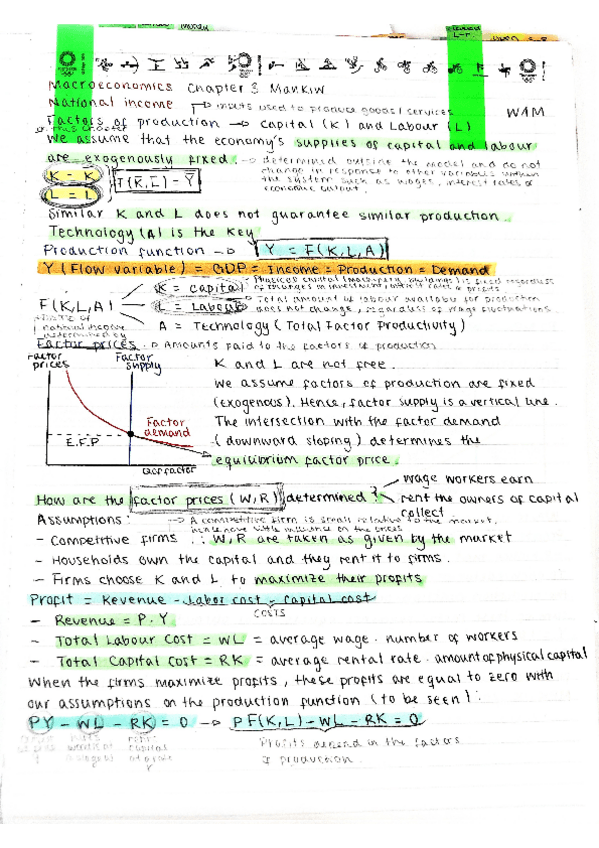 Macroeconomics Chapter 3 Mankiw
National income → inputs used to produce goods / services
WAM
Factors of production → Capital (K) and Labour (L)
In this chapter
We assume that the economy's supplies of capital and labour
are exogenously fixed. → determined outside the model and do not
change in response to other variables within
the system such as wages, interest rates or
economic output.
K = K̄
L = L̄
F(K, L) = Ȳ
Similar K and L does not guarantee similar production.
Technology (A) is the key
Production function → Y = F(K, L, A)
Y (Flow variable) = GDP = Income = Production = Demand
F(K, L, A)
K = Capital
L = Labour
Total amount of labour available for production
does not change, regardless of wage fluctuations.
A = Technology (Total Factor Productivity)
national income
determined by
Factor prices → Amounts paid to the factors of production
Factor prices
Factor supply
Factor demand
E.F.P
K and L are not free.
We assume factors of production are fixed
(exogenous). Hence, factor supply is a vertical line.
The intersection with the factor demand
(downward sloping) determines the
equilibrium factor price.
How are the factor prices (W, R) determined?
wage workers earn
rent the owners of capital
collect
Assumptions: → A competitive firm is small relative to the market,
hence have little influence on the prices
- Competitive firms ∴ W, R are taken as given by the market
- Households own the capital and they rent it to firms.
- Firms choose K and L to maximize their profits
Profit = Revenue - Labor cost - Capital cost
COSTS
- Revenue = P · Y
- Total Labour Cost = WL = average wage · number of workers
- Total Capital Cost = RK = average rental rate · amount of physical capital
When the firms maximize profits, these profits are equal to zero with
our assumptions on the production function (to be seen):
PY - WL - RK = 0 → PF(K, L) - WL - RK = 0
Profits depend in the factors
of production.